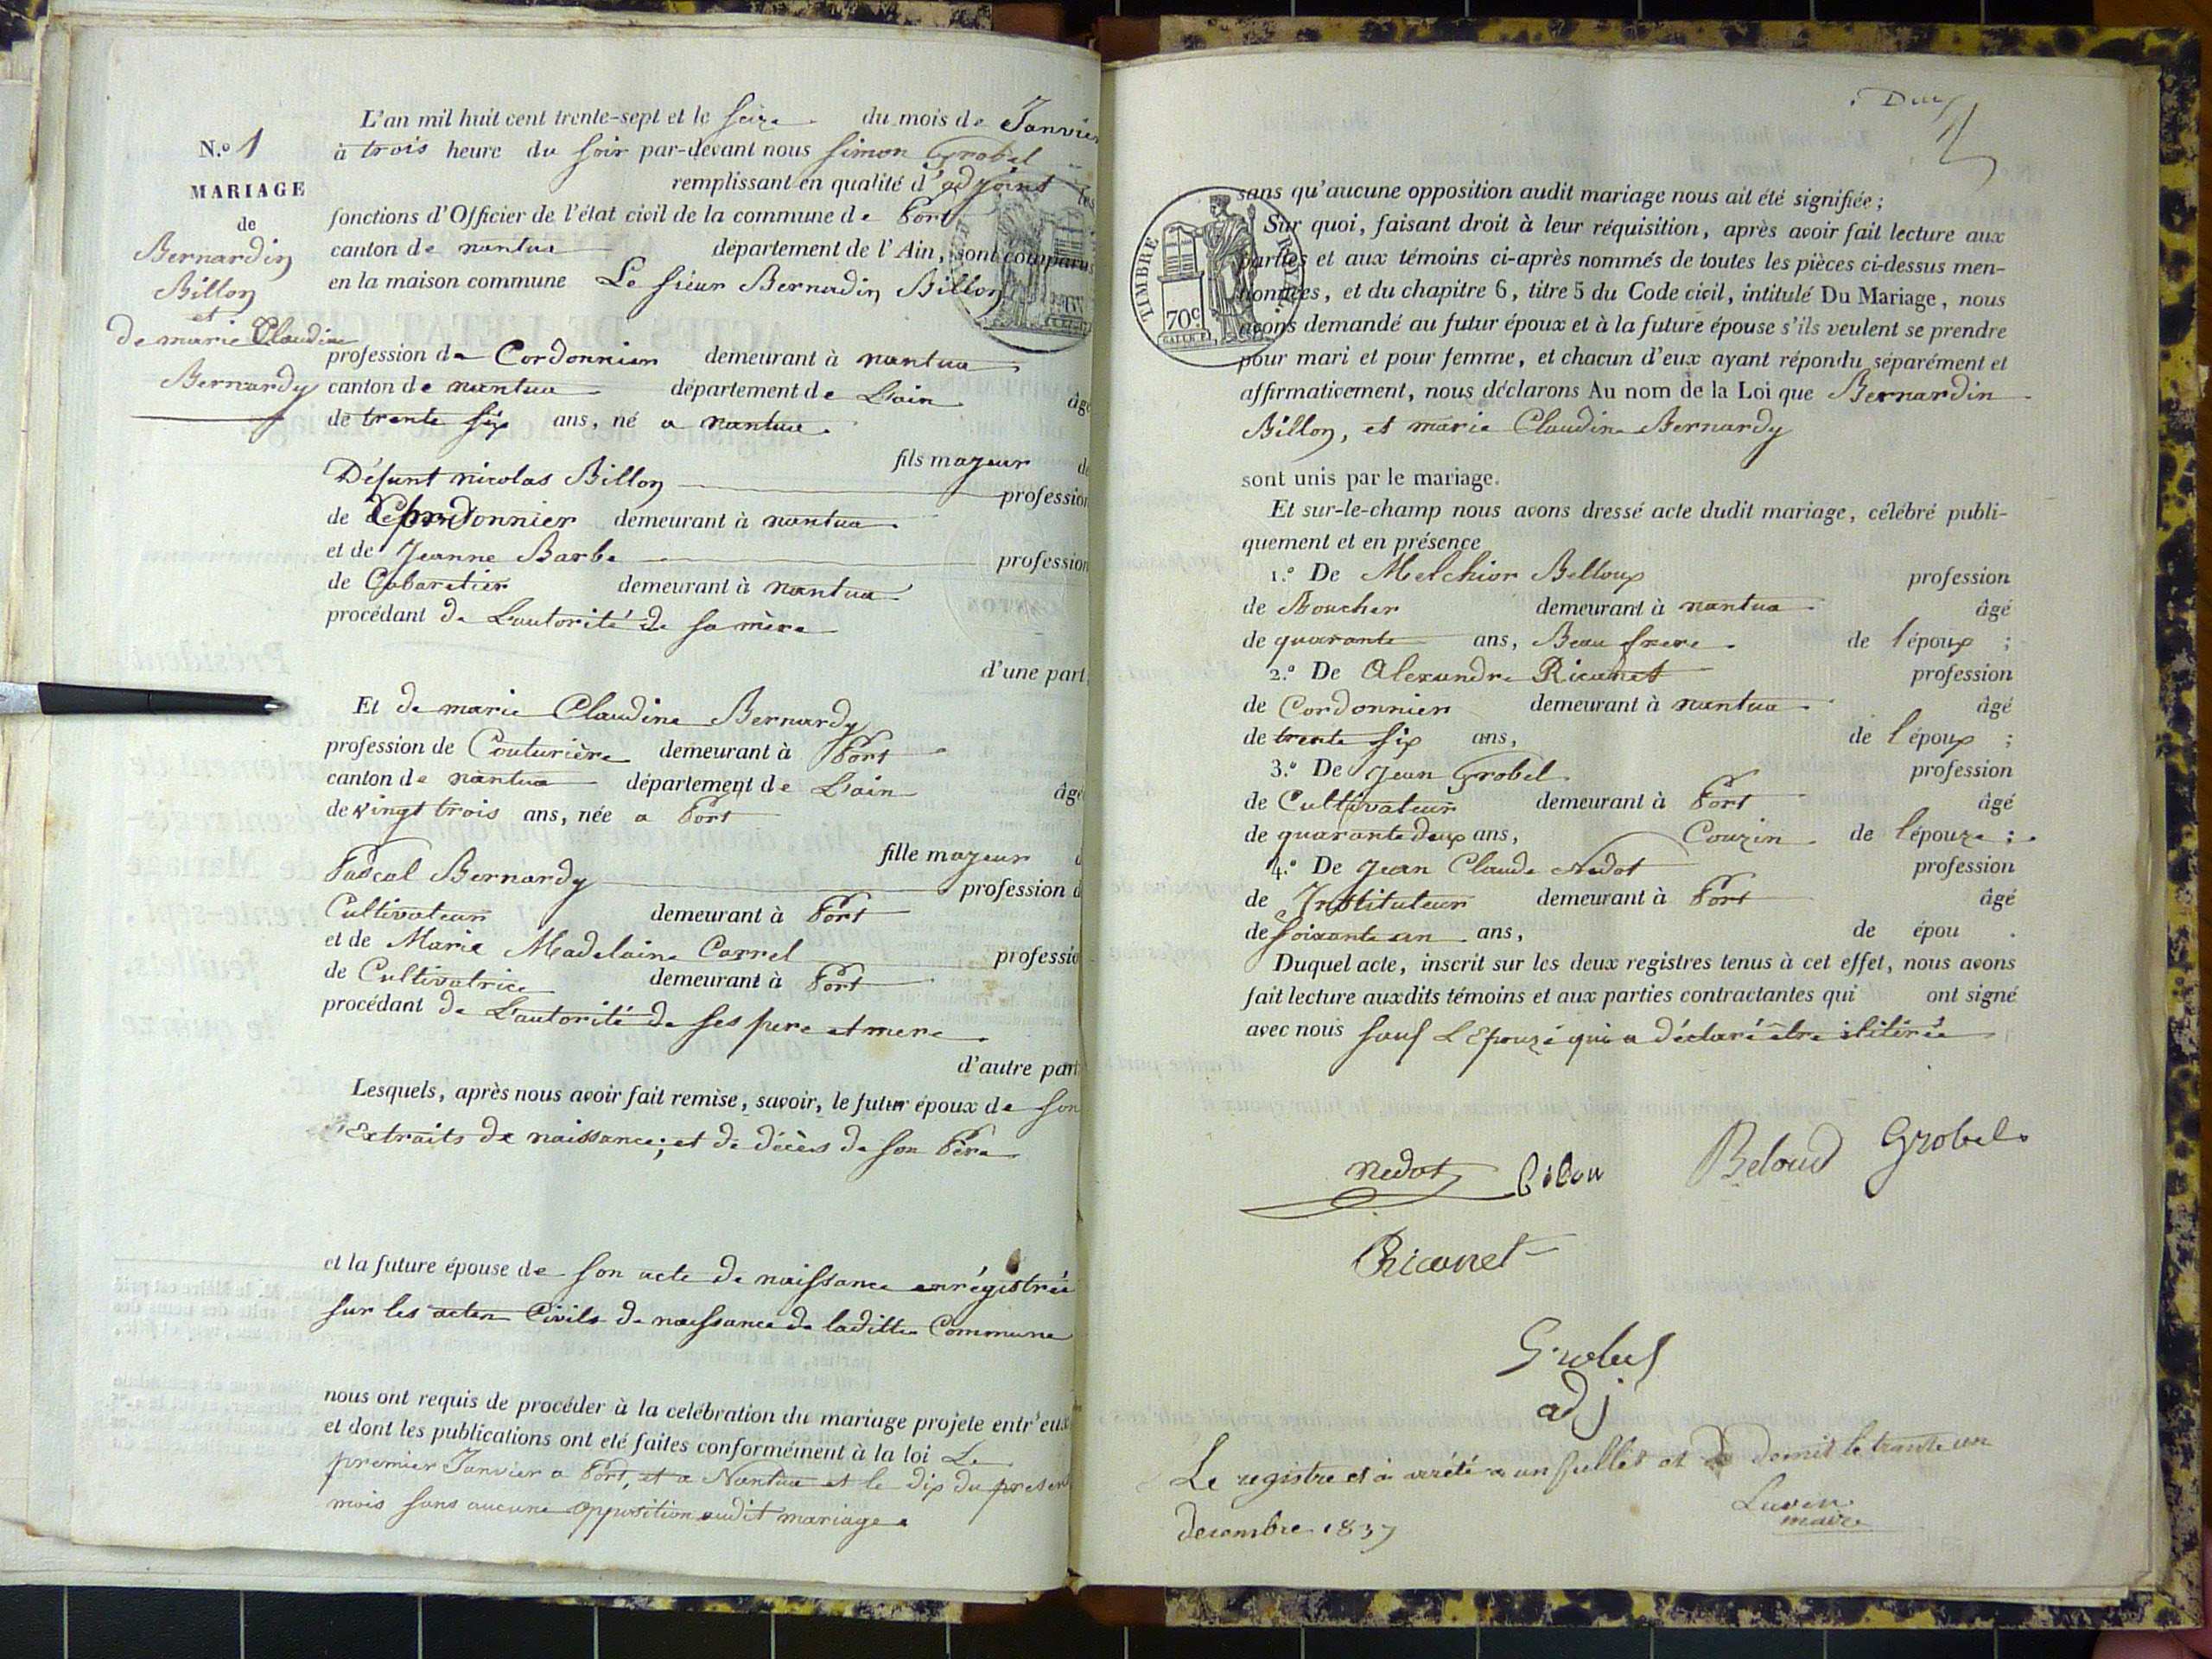 N.o 1
MARIAGE
de
Bernardin
Billon
et
de marie Claudine
Bernardy
L'an mil huit cent trente-sept et le seize du mois de Janvier
à trois heure du soir par-devant nous simon Grobel
remplissant en qualité d'adjoint les
fonctions d'Officier de l'état civil de la commune de Port
canton de nantua département de l'Ain, sont comparus
en la maison commune Le sieur Bernadin Billon
profession de Cordonnier demeurant à nantua
canton de nantua département de L'ain âgé
de trente six ans, né a nantua
fils majeur de
Défunt nicolas Billon profession
de demeurant à nantua
et de Jeanne Barbe profession
de Cabaretier demeurant à nantua
procédant de L'autorité de sa mère
d'une part,
Et de marie Claudine Bernardy
profession de Couturière demeurant à Port
canton de nantua département de L'ain âgé
de vingt trois ans, née a Port
fille majeur d
Pascal Bernardy profession d
Cultivateur demeurant à Port
et de Marie Madelaine Carrel profession
de Cultivatrice demeurant à Port
procédant de L'autorité de ses pere et mere
d'autre part
Lesquels, après nous avoir fait remise, savoir, le futur époux de son
Extraits de naissance; et de décès de son Père
et la future épouse de son acte de naissance enrégistrée
sur les actes Civils de naissance de laditte Commune
nous ont requis de procéder à la celébration du mariage projete entr'eux
et dont les publications ont eté faites conformément à la loi Le
premier Janvier a Port, et a Nantua et le dix du present
mois sans aucune opposition audit mariage
sans qu'aucune opposition audit mariage nous ait été signifiée;
Sur quoi, faisant droit à leur réquisition, après avoir fait lecture aux
parties et aux témoins ci-après nommés de toutes les pièces ci-dessus men-
tionnées, et du chapitre 6, titre 5 du Code civil, intitulé Du Mariage, nous
avons demandé au futur époux et à la future épouse s'ils veulent se prendre
pour mari et pour femme, et chacun d'eux ayant répondu séparément et
affirmativement, nous déclarons Au nom de la Loi que Bernardin
Billon, et marie Claudine Bernardy
TIMBRE ROYAL
70c
sont unis par le mariage.
Et sur-le-champ nous avons dressé acte dudit mariage, célébré publi-
quement et en présence
1.o De Melchior Belloux profession
de Boucher demeurant à nantua âgé
de quarante ans, Beau frere de l'époux ;
2.o De Alexandre Ricanet profession
de Cordonnier demeurant à nantua âgé
de trente six ans, de l'époux ;
3.o De Jean Grobel profession
de Cultivateur demeurant à Port âgé
de quarante deux ans, Couzin de l'épouze ;
4.o De Jean Claude Nedot profession
de Instituteur demeurant à Port âgé
de soixante un ans, de épou .
Duquel acte, inscrit sur les deux registres tenus à cet effet, nous avons
fait lecture auxdits témoins et aux parties contractantes qui ont signé
avec nous sauf L'Epouzé qui a déclaré être ilitirée
nedot Bilon Beloud Grobel
Ricanet
Grobel
adj
Le registre et à arété a un fullet et demit le trante un
decembre 1837
maire